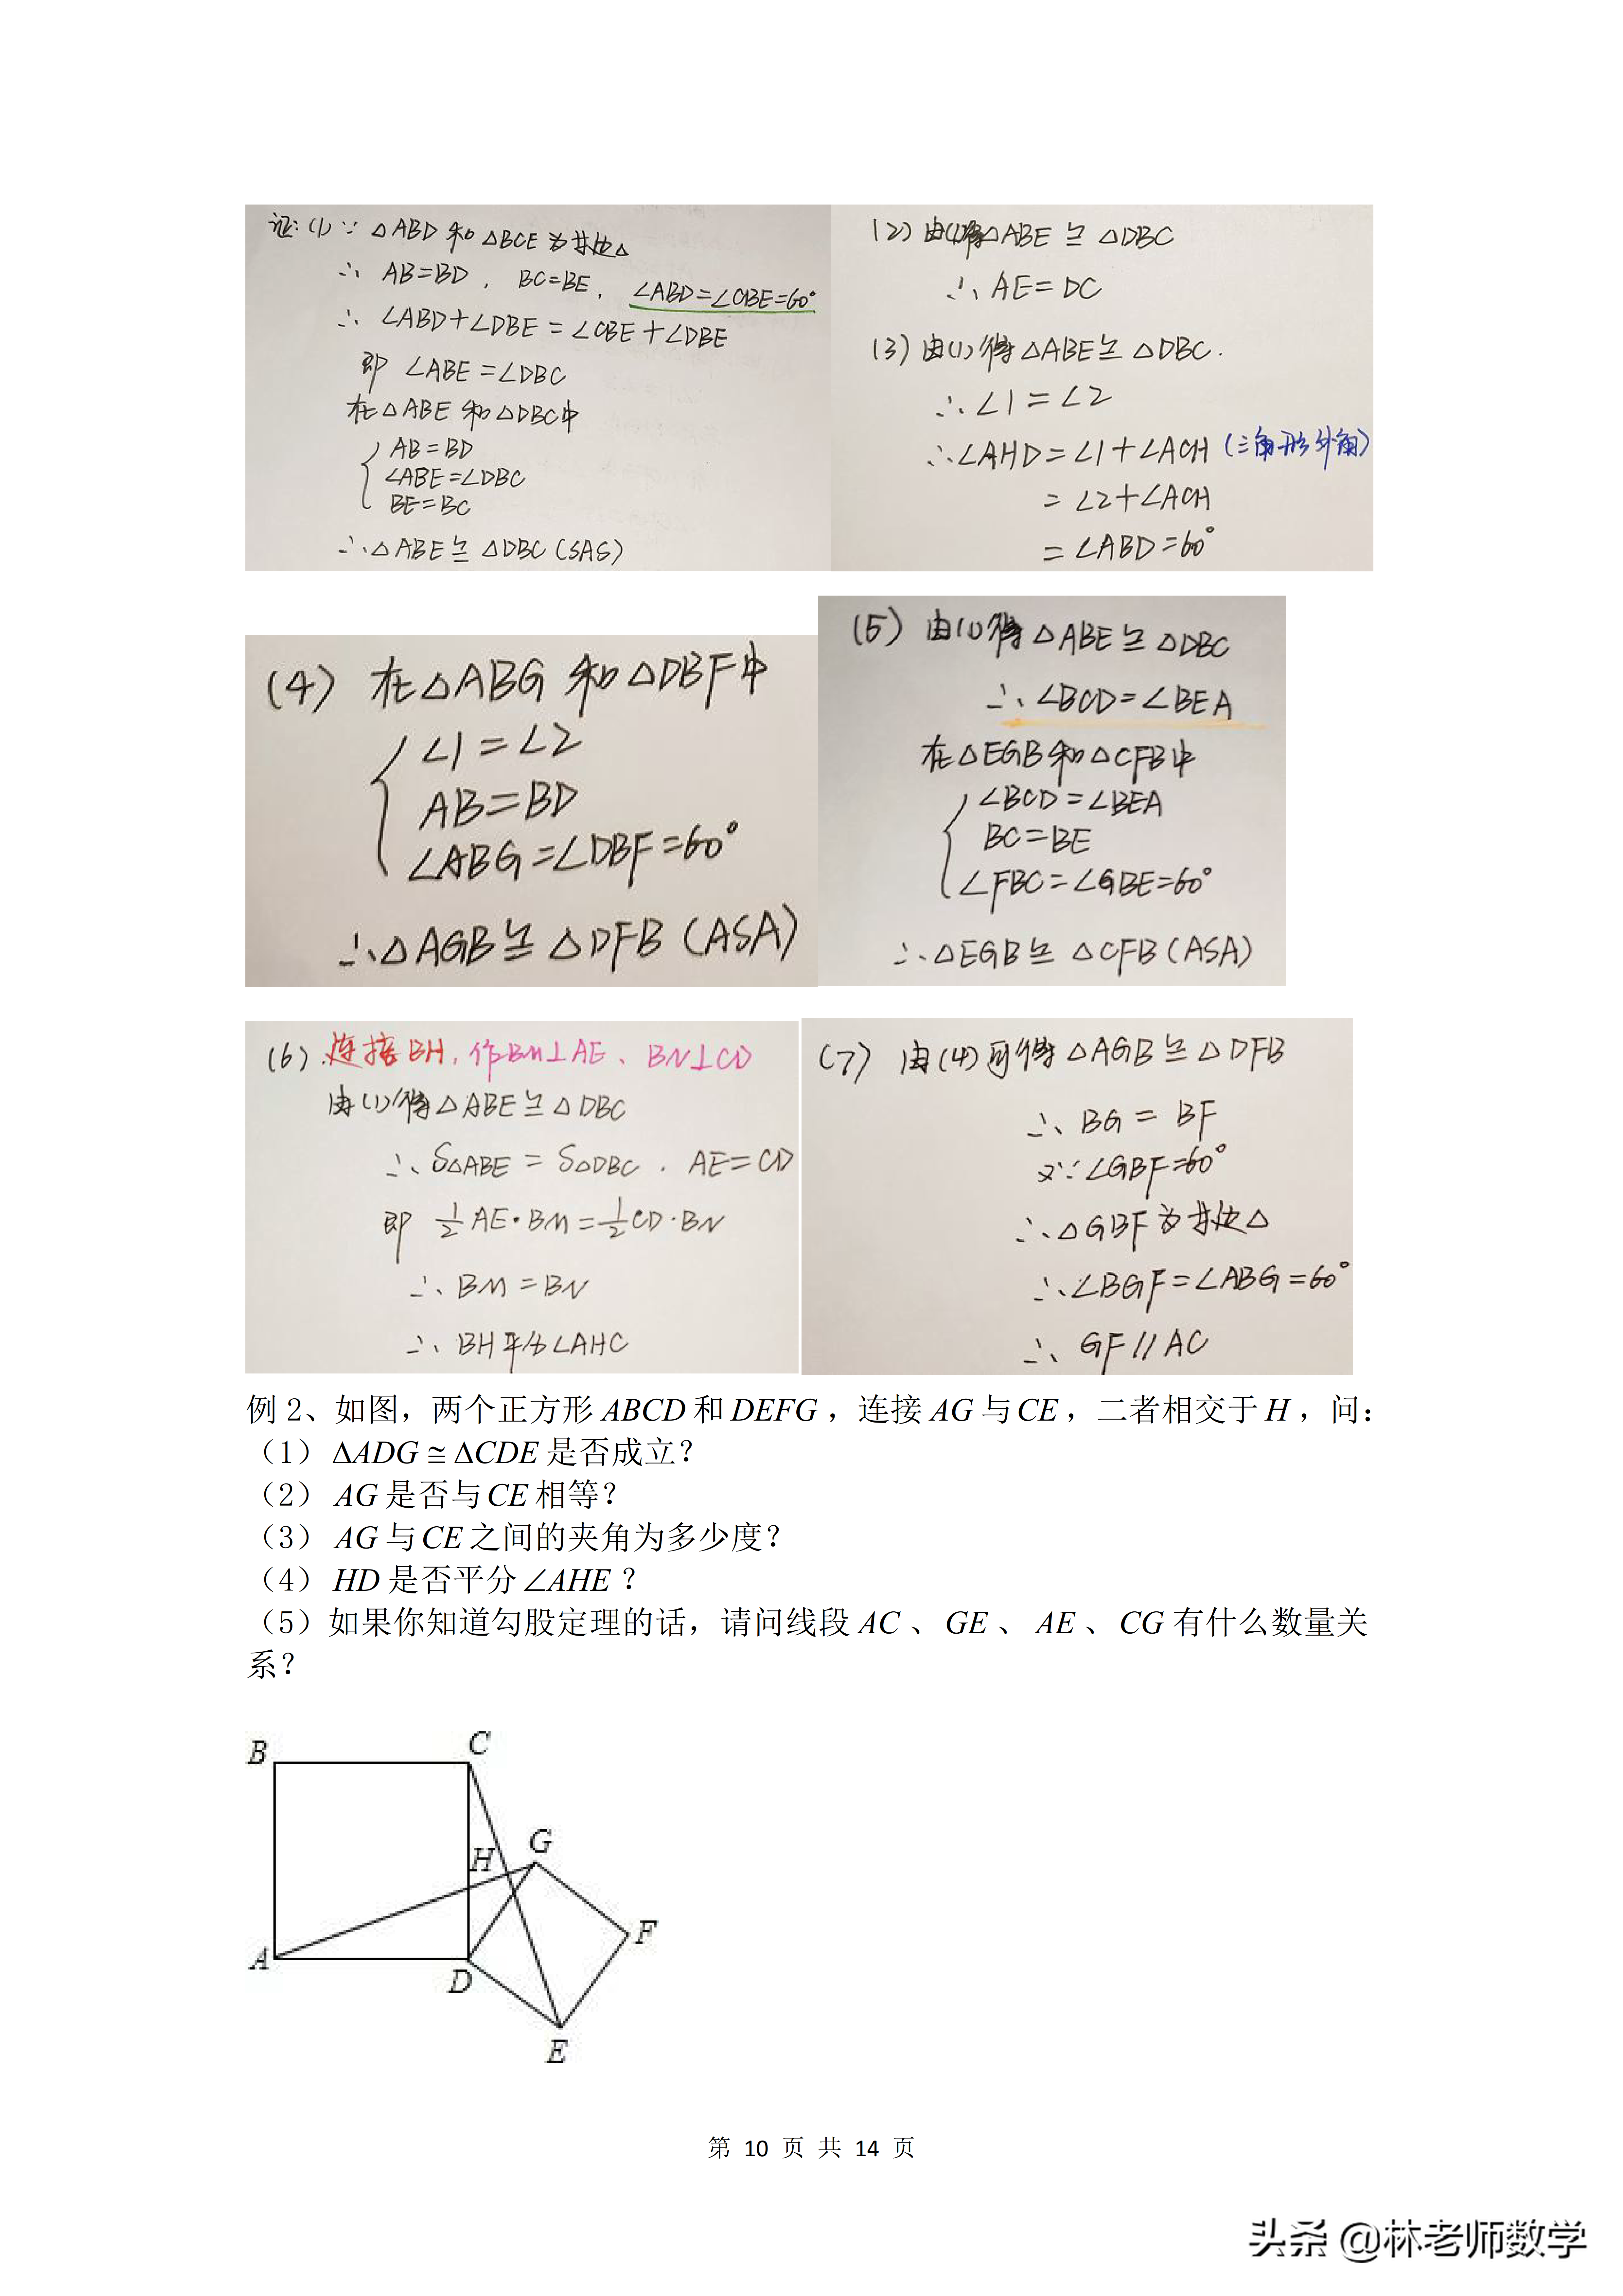 证:(1) ∵ △ABD 和 △BCE 为等边△
∴ AB=BD , BC=BE , ∠ABD=∠CBE=60°
∴ ∠ABD+∠DBE=∠CBE+∠DBE
即 ∠ABE=∠DBC
在△ABE 和△DBC中
AB=BD
∠ABE=∠DBC
BE=BC
∴△ABE≌△DBC(SAS)
(2) 由(1)得△ABE≌△DBC
∴AE=DC
(3) 由(1)得△ABE≌△DBC.
∴∠1=∠2
∴∠AHD=∠1+∠ACH (三角形外角)
=∠2+∠ACH
=∠ABD=60°
(4) 在△ABG 和△DBF中
∠1=∠2
AB=BD
∠ABG=∠DBF=60°
∴△AGB≌△DFB (ASA)
(5) 由(1)得△ABE≌△DBC
∴∠BCD=∠BEA
在△EGB和△CFB中
∠BCD=∠BEA
BC=BE
∠FBC=∠GBE=60°
∴△EGB≌△CFB(ASA)
(6).连接BH,作BM⊥AE、BN⊥CD
由(1)得△ABE≌△DBC
∴S△ABE=S△DBC . AE=CD
即 1/2 AE·BM=1/2 CD·BN
∴ BM=BN
∴ BH平分∠AHC
(7) 由(4)可得△AGB≌△DFB
∴ BG=BF
又∵∠GBF=60°
∴△GBF为等边△
∴∠BGF=∠ABG=60°
∴ GF∥AC
例 2、如图，两个正方形 ABCD 和 DEFG ，连接 AG 与 CE ，二者相交于 H ，问：
（1）ΔADG ≅ ΔCDE 是否成立？
（2）AG 是否与 CE 相等？
（3）AG 与 CE 之间的夹角为多少度？
（4）HD 是否平分 ∠AHE ？
（5）如果你知道勾股定理的话，请问线段 AC 、 GE 、 AE 、 CG 有什么数量关
系？
B
C
G
H
F
A
D
E
第 10 页 共 14 页
头条 @林老师数学